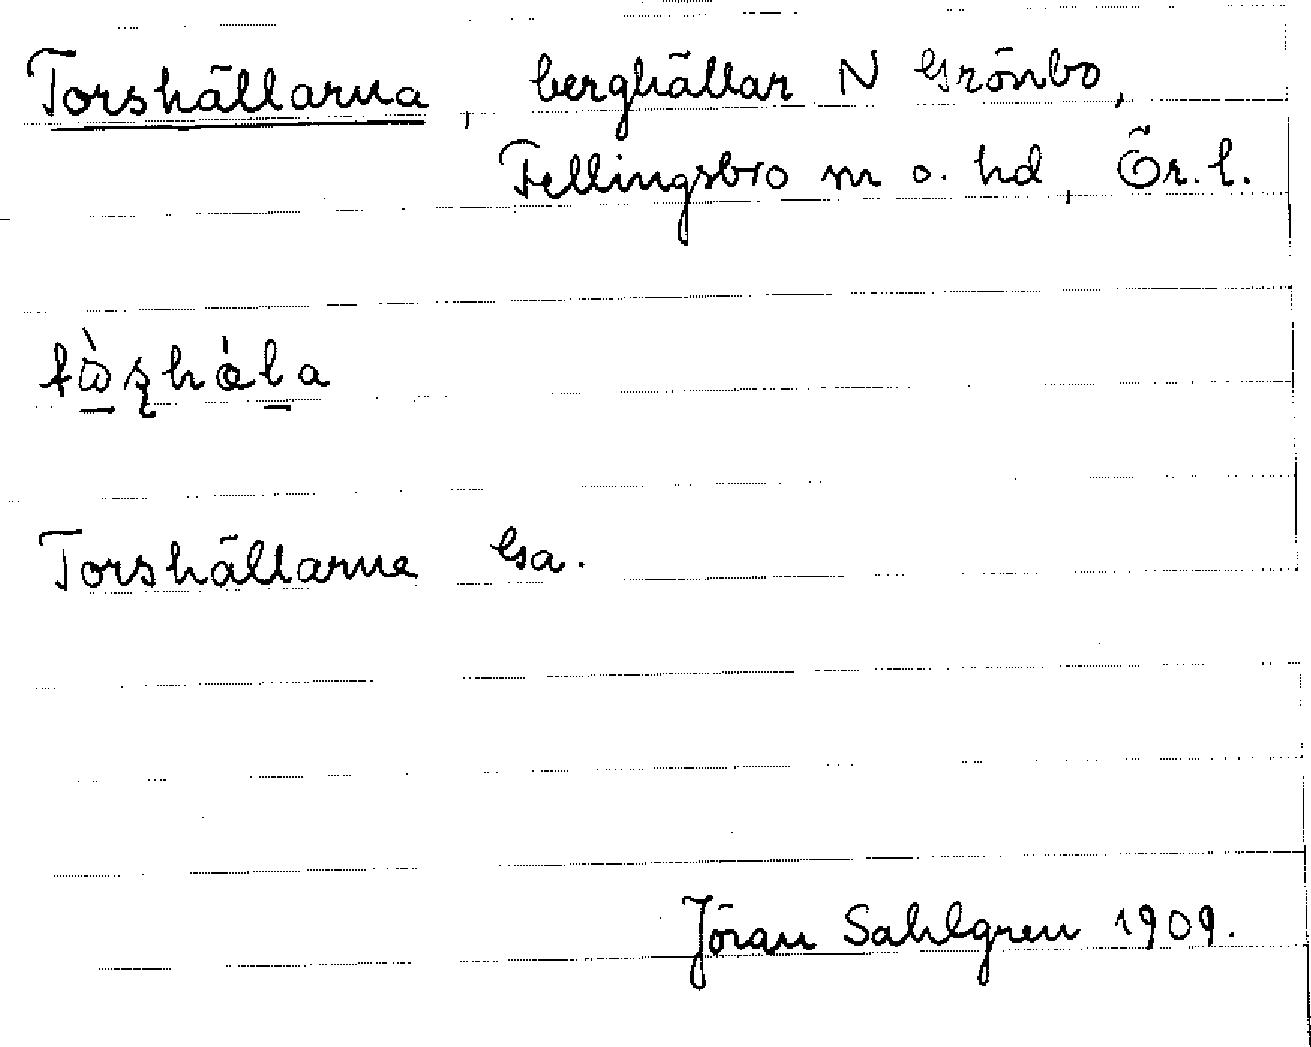 Torshällarna, berghällar N Grönbo,
Fellingsbro sn o. hd, Ör. l.
Torshällarna Ga.
Jöran Sahlgren 1909.